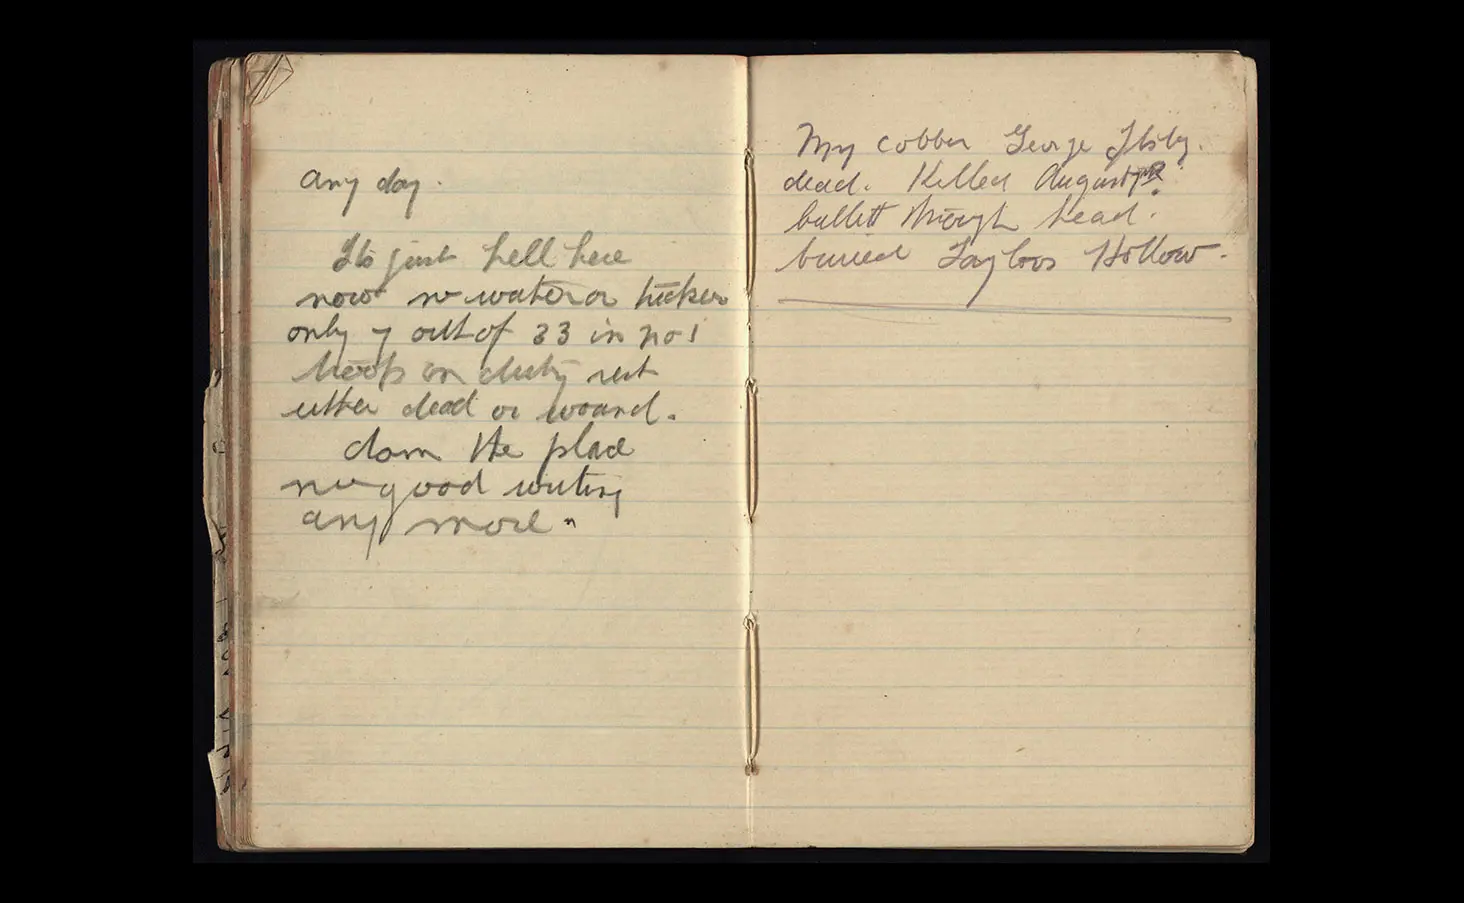 any day.
Its just hell here
now no water or tucker
only 7 out of 33 in no 1
troop on duty rest
either dead or wound.
dam the place
no good writing
any more.
My cobber George
dead. Killed August
bullett through head.
buried Taylors Hollow.